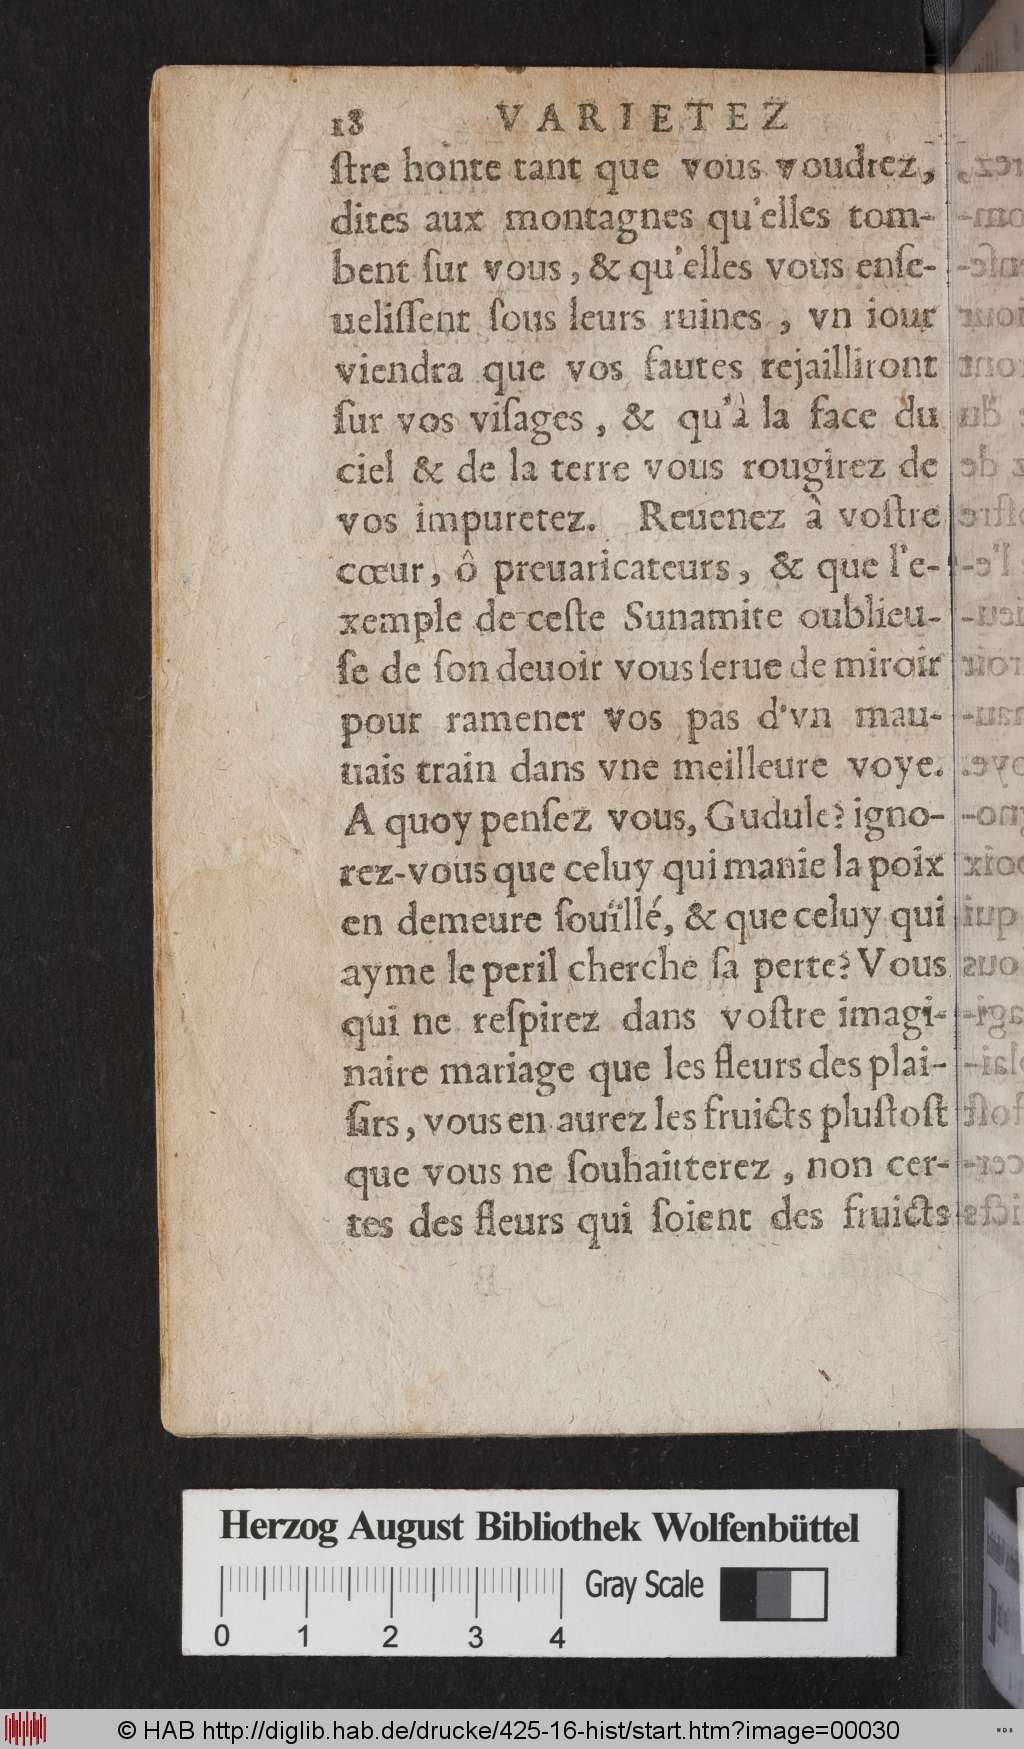 18 VARIETEZ
ſtre honte tant que vous voudrez,
dites aux montagnes qu'elles tom-
bent ſur vous, & qu'elles vous enſe-
ueliſſent ſous leurs ruines, vn iour
viendra que vos fautes rejailliront
ſur vos viſages, & qu'à la face du
ciel & de la terre vous rougirez de
vos impuretez. Reuenez à voſtre
cœur, ô preuaricateurs, & que l'e-
xemple de ceſte Sunamite oublieu-
ſe de ſon deuoir vous ſerue de miroir
pour ramener vos pas d'vn mau-
uais train dans vne meilleure voye.
A quoy penſez vous, Gudule? igno-
rez-vous que celuy qui manie la poix
en demeure ſouïllé, & que celuy qui
ayme le peril cherche ſa perte? Vous
qui ne reſpirez dans voſtre imagi-
naire mariage que les fleurs des plai-
ſirs, vous en aurez les fruicts pluſtoſt
que vous ne ſouhaitterez, non cer-
tes des fleurs qui ſoient des fruicts
Herzog August Bibliothek Wolfenbüttel
Gray Scale
0 1 2 3 4
© HAB http://diglib.hab.de/drucke/425-16-hist/start.htm?image=00030